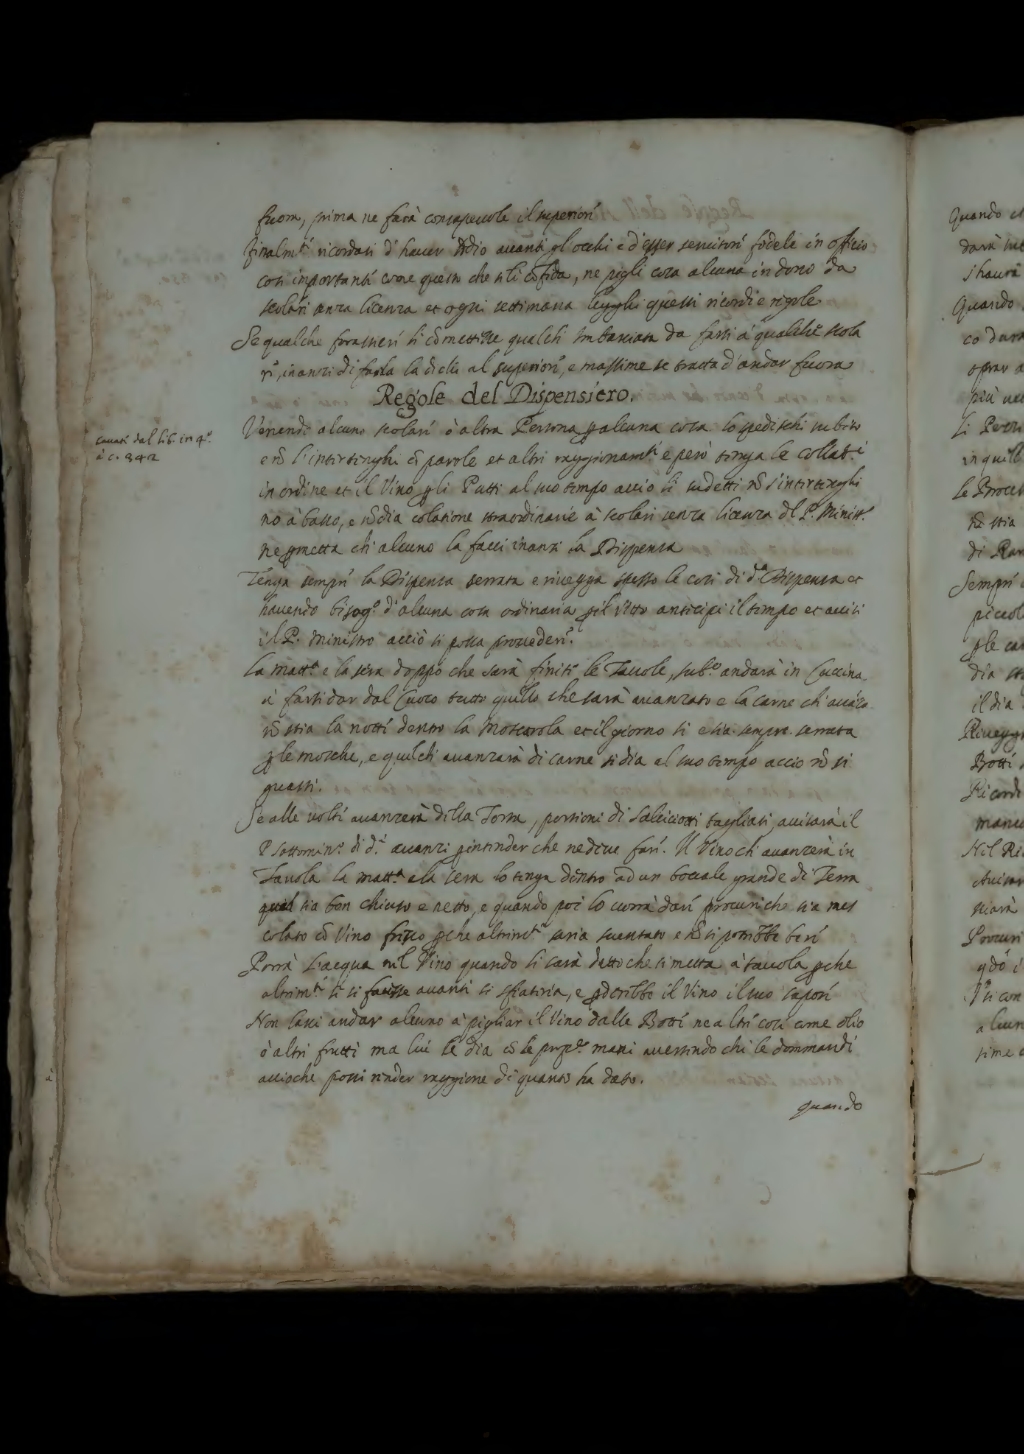 fuora, prima ne farà consapevole il superiore
finalmte ricordasi d'haver Iddio avanti gl'occhi e d'esser servitore fedele in officio
così importante come questo che se li cōfida, ne pigli cosa alcuna in dono da
scolari senza licenza et ogni settimana legghi questi ricordi e regole
Se qualche forastiere li cōmettesse qualche imbasciata da farsi à qualche scola
re, inanzi di farla la dica al superiore, e massime se tratta d'andar fuora
Regole del Dispensiero.
cavate dal lib. in 4º
à c. 342
Venendo alcuno scolare ò altra Persona p alcuna cosa lo spedischi subito
e nō l'intertenghi cō parole et altri raggionamti e però tenga le collati
in ordine et il Vino p li Putti al suo tempo acciò li sudetti nō s'intertenghi
no à basso, e nō dia colatione straordinarie à scolari senza licenza del P. Ministº
ne pmetta che alcuno la facci inanzi la Dispensa
Tenga sempre la Dispensa serrata e rivegga spesso le cose di da Dispensa et
havendo bisogº d'alcuna cosa ordinaria p il Vitto anticipi il tempo et avvisi
il P. Ministro acciò si possa provedere.
La matta e la sera doppo che sarà finite le Tavole, subº andarà in Cuccina
à farsi dar dal Cuoco tutto quello che sarà avanzato e la carne ch'avāza
nō stia la notte dentro la moscarola et il giorno si e stia sempre serrata
p le mosche, e quel ch'avanzarà di carne si dia al suo tempo acciò nō si
guasti.
Se alle volte avanzerà della Torta, portioni di salsiciotti tagliati avisarà il
P. Sottominº di di avanzi p intender che ne deve fare. Il Vino ch'avanzerà in
Tavola la matta e la sera lo tenga dentro ad un boccale grande di Terra
qual sia ben chiuso e netto, e quando poi lo vorrà dare procuri che sia mes
colato cō Vino fresco p che altrimte saria sventato e nō si potrebbe bere
Porrà l'acqua nel Vino quando li sarà detto che si metta à tavola p che
altrimte se si facesse avanti si sfiataria, e pderebbe il Vino il suo sapore
Non lassi andar alcuno à pigliar il Vino dalle Botti ne altre cose come olio
ò altri frutti ma lui le dia cō le prope mani avertendo chi le dommandi
accioche possi render raggione di quanto ha dato.
quando